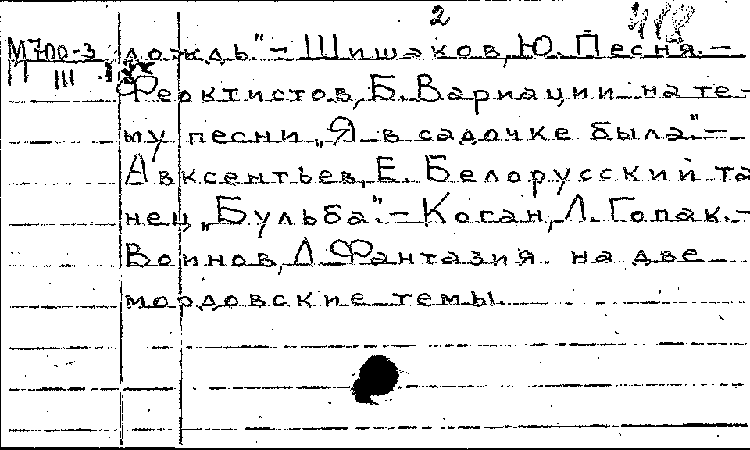 2 418
М700-3 дождь" – Шишаков, Ю. Песня. –
III Феоктистов, Б. Вариации на те-
му песни „Я в садочке была". –
Авксентьев, Е. Белорусский та
нец „Бульба". – Коган, Л. Гопак. –
Воинов, Л. Фантазия на две
мордовские темы.